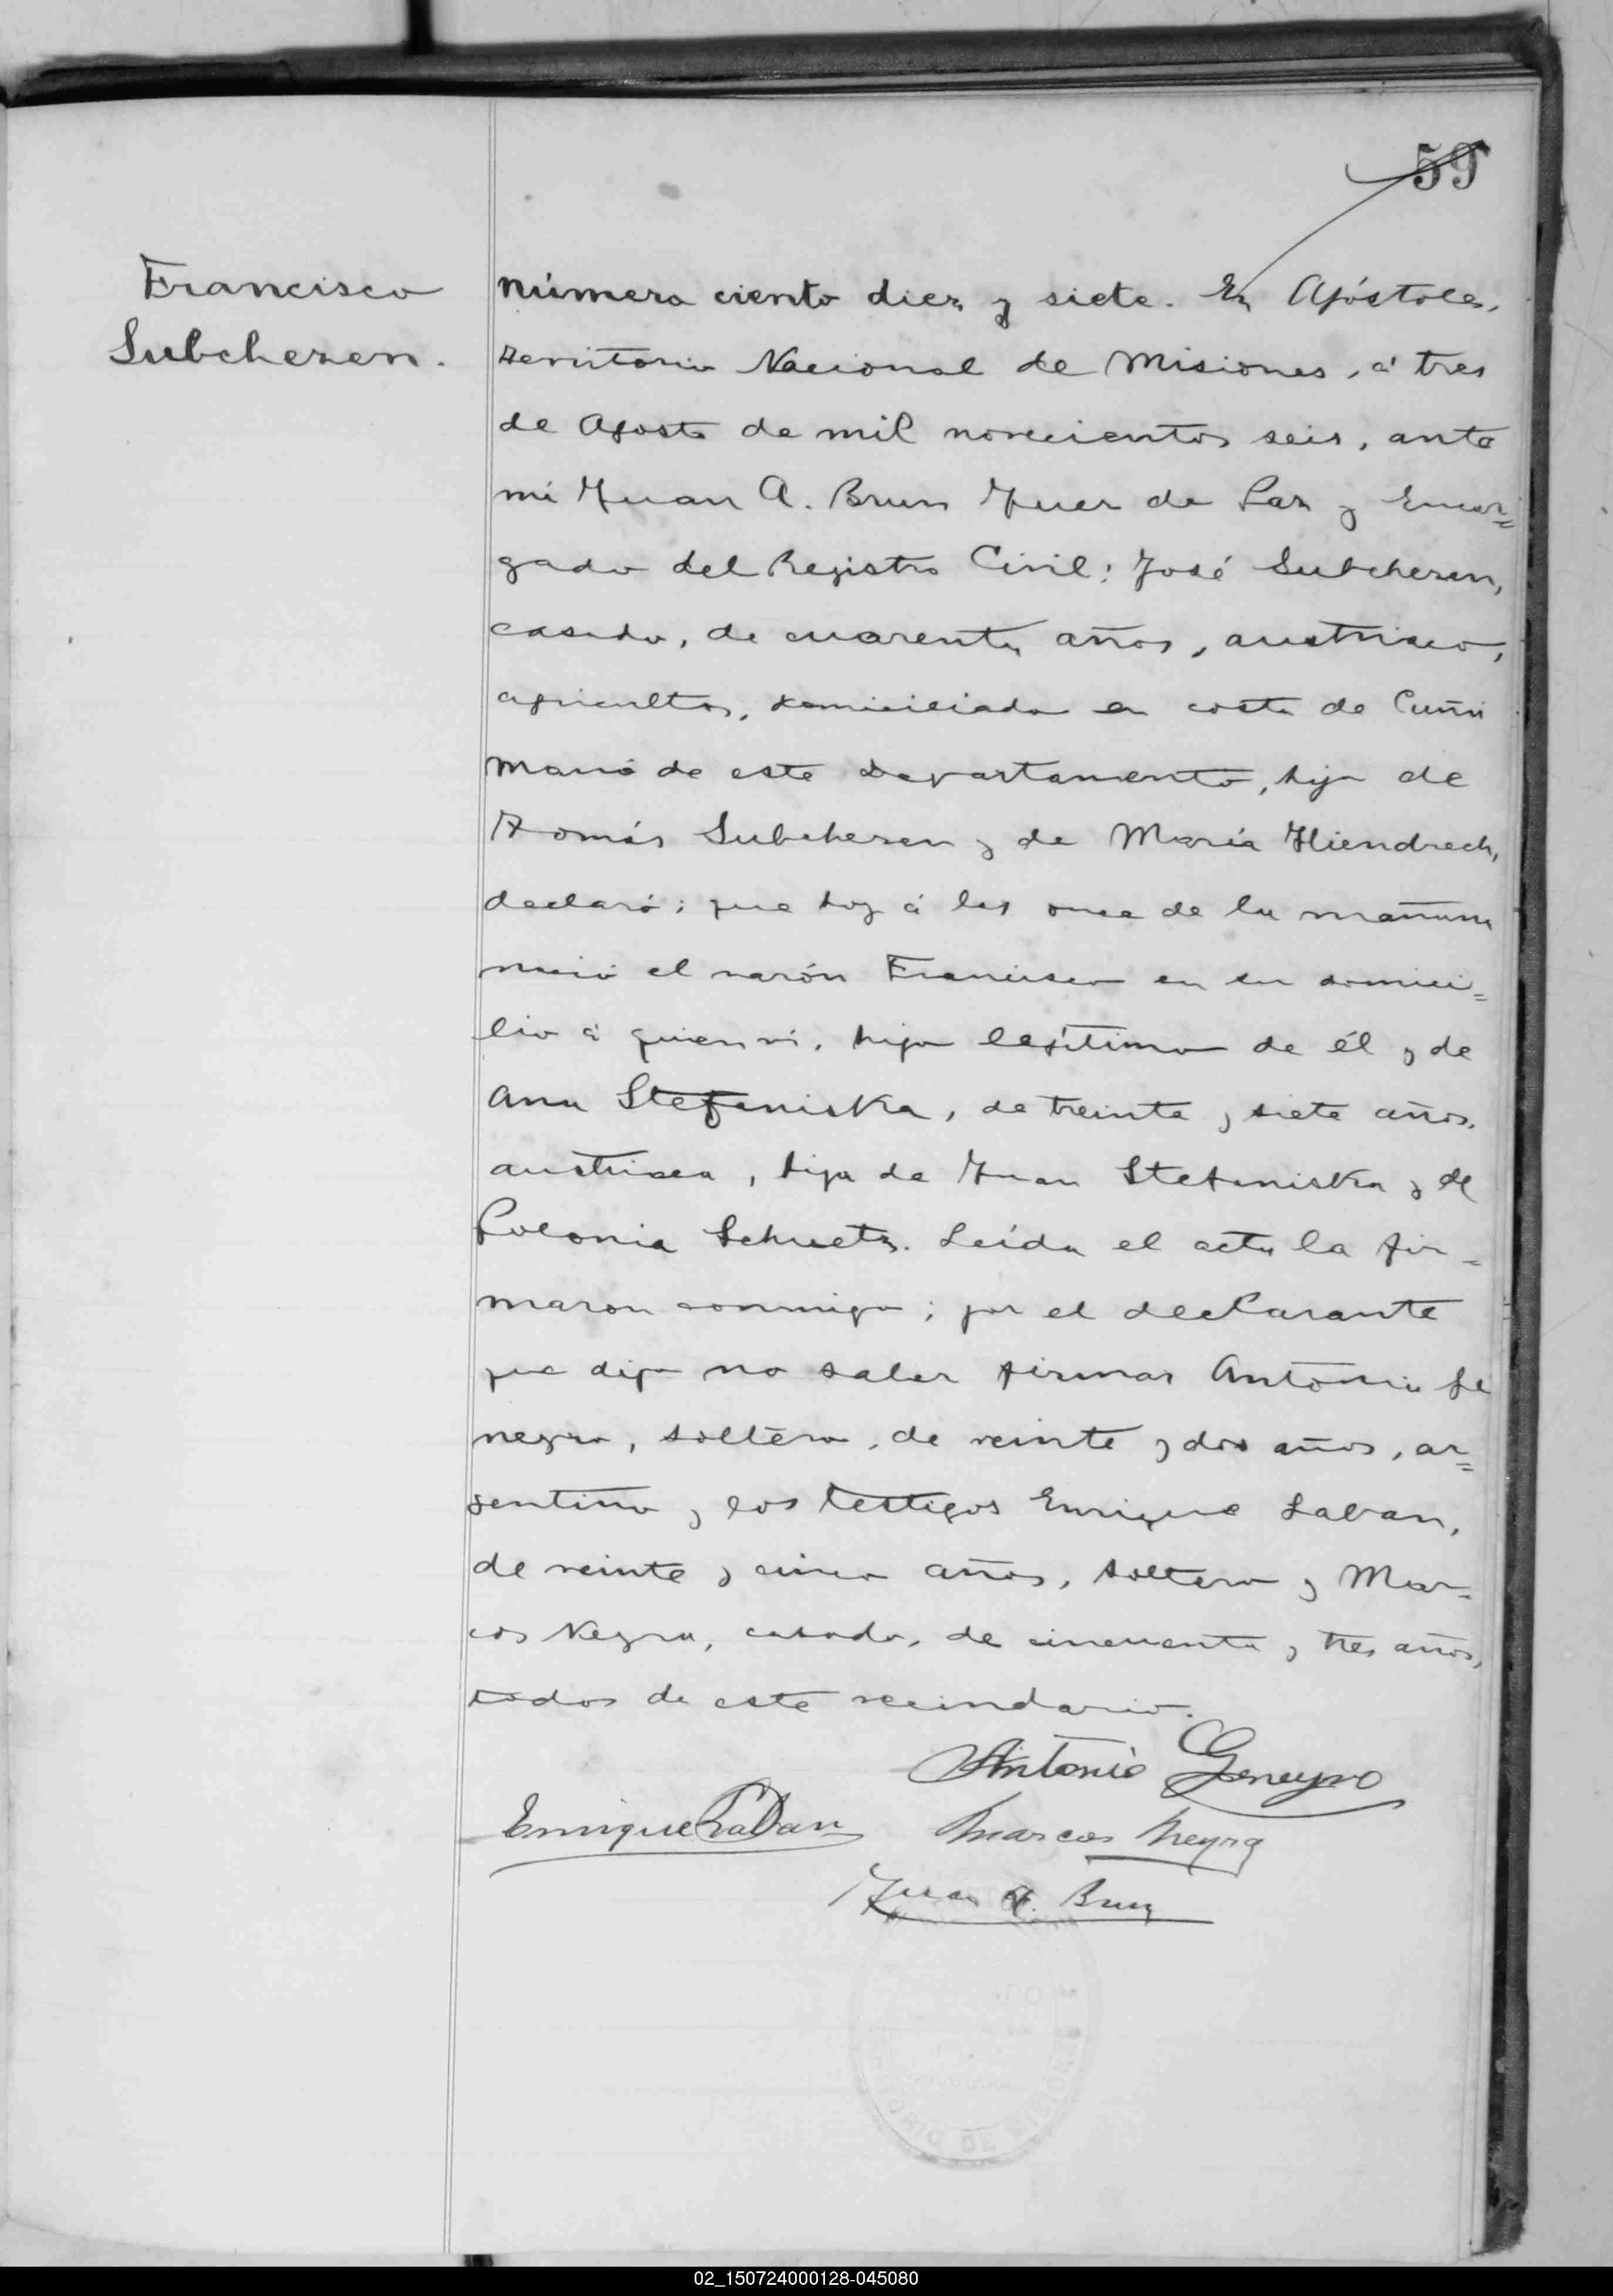 59
Francisco
Subchezen.
Número ciento diez y siete. En Apóstoles,
Territorio Nacional de Misiones, á tres
de Agosto de mil novecientos seis, ante
mi Juan A. Brun Juez de Paz y Encar=
gado del Registro Civil: José Subchezen,
casado, de cuarenta años, austriaco,
agricultor, domiciliado en costa de Cuña
Manó de este Departamento, hijo de
Tomás Subchezen y de María Hiendrech,
declaró; que hoy á las once de la mañana
nació el varón Francisco en su domici=
lio á quien ví, hijo legítimo de él y de
Ana Stefaniska, de treinta y siete años,
austriaca, hija de Juan Stefaniska y de
Polonia Schuetz. Leída el acta la fir=
maron conmigo; por el declarante
que dijo no saber firmar Antonio Je
neyro, soltero, de veinte y dos años, ar=
gentino y los testigos Enrique Laban,
de veinte y cinco años, soltero y Mar=
cos Neyra, casado, de cincuenta y tres años,
todos de este vecindario.
Antonio Geneyro
Enrique Laban Marcos Neyra
Juan A. Brun
02_150724000128-045080